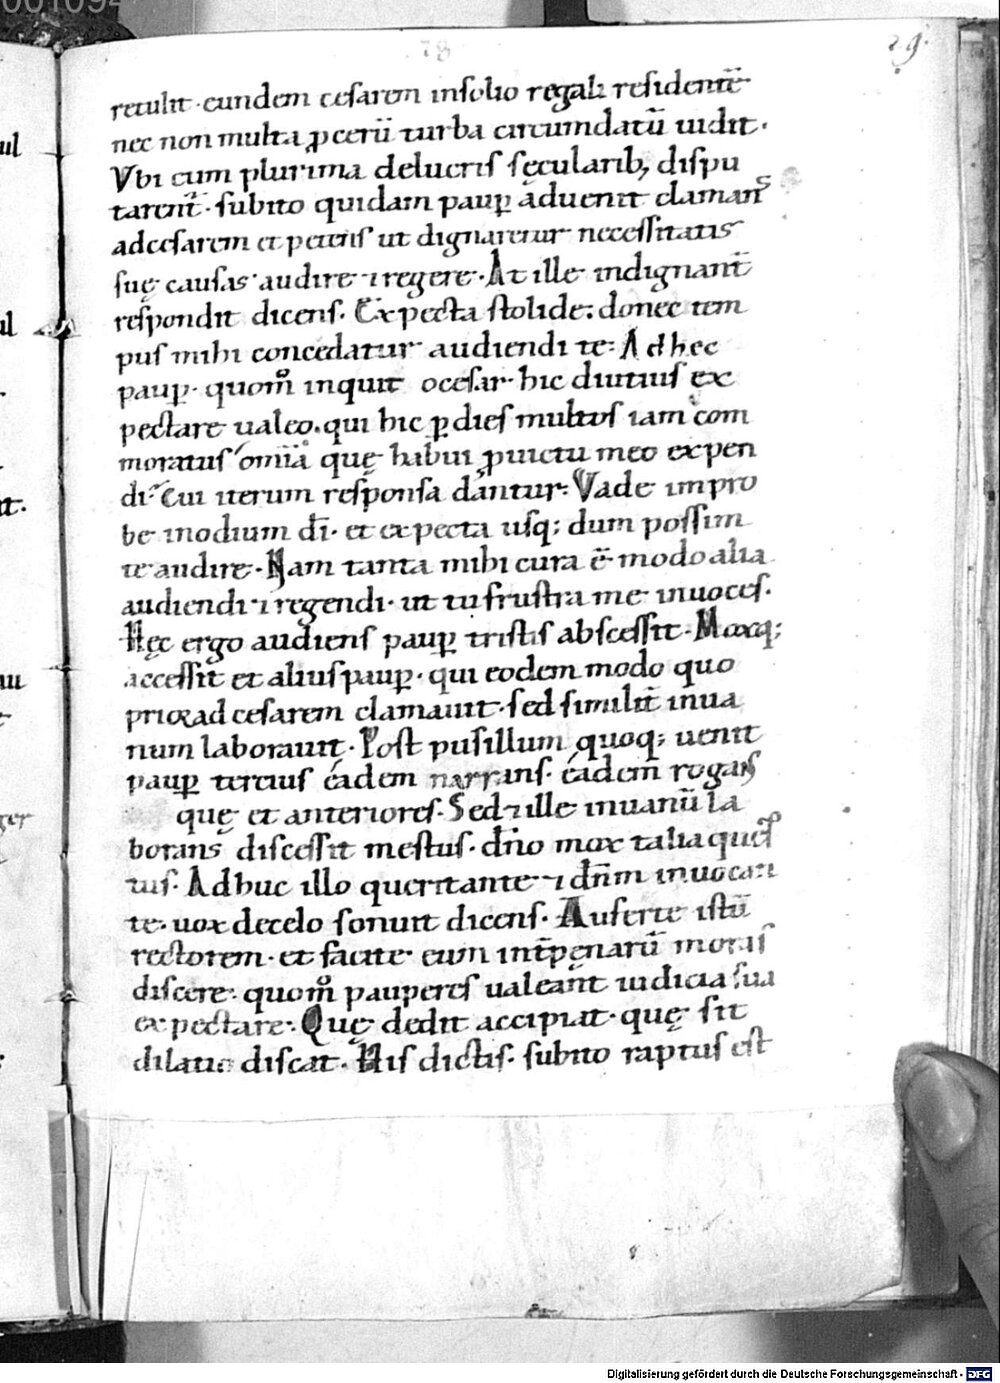 29.
retulit · eundem cesarem insolio regali residentē
nec non multa ꝓcerū turba circumdatū uidit.
Vbi cum plurima delucris sęcularib; dispu
tarent̄ · subito quidam paup̲ aduenit clamans
adcesarem et petens ut dignaretur necessitatis
suę causas audire ⁊ regere · At ille indignant̄
respondit dicens. Expecta stolide; donec tem
pus mihi concedatur audiendi te: Adhec
paup̲ · quom̊ inquit ocesar · hic diutius ex
pectare ualeo, qui hic p̲ dies multos iam com
moratus omīa quę habui ꝓuictu meo expen
di · Cui iterum responsa dantur: Vade impro
be inodium dī · et expecta usq; dum possim
te audire · Nam tanta mihi cura ē modo alia
audiendi ⁊ regendi · ut tu frustra me inuoces.
Hęc ergo audiens paup̲ tristis abscessit · Moxq;
accessit et alius paup̲ · qui eodem modo quo
prior ad cesarem clamauit · sed similit̄ inua
num laborauit · Post pusillum quoq; uenit
paup̲ tercius éadem narrans · éadem rogans
quę et anteriores · Sed ⁊ ille inuanū la
borans discessit mestus · dn̄o mox talia ques
tus · Adhuc illo queritante ⁊ dn̄m inuocan
te · uox decelo sonuit dicens. Auferte istū
rectorem · et facite eum int̄ pęnarū moras
discere · quom̊ pauperes ualeant iudicia sua
expectare · Quę dedit accipiat · quę sit
dilatio discat · His dictis · subito raptus est
Digitalisierung gefördert durch die Deutsche Forschungsgemeinschaft - DFG